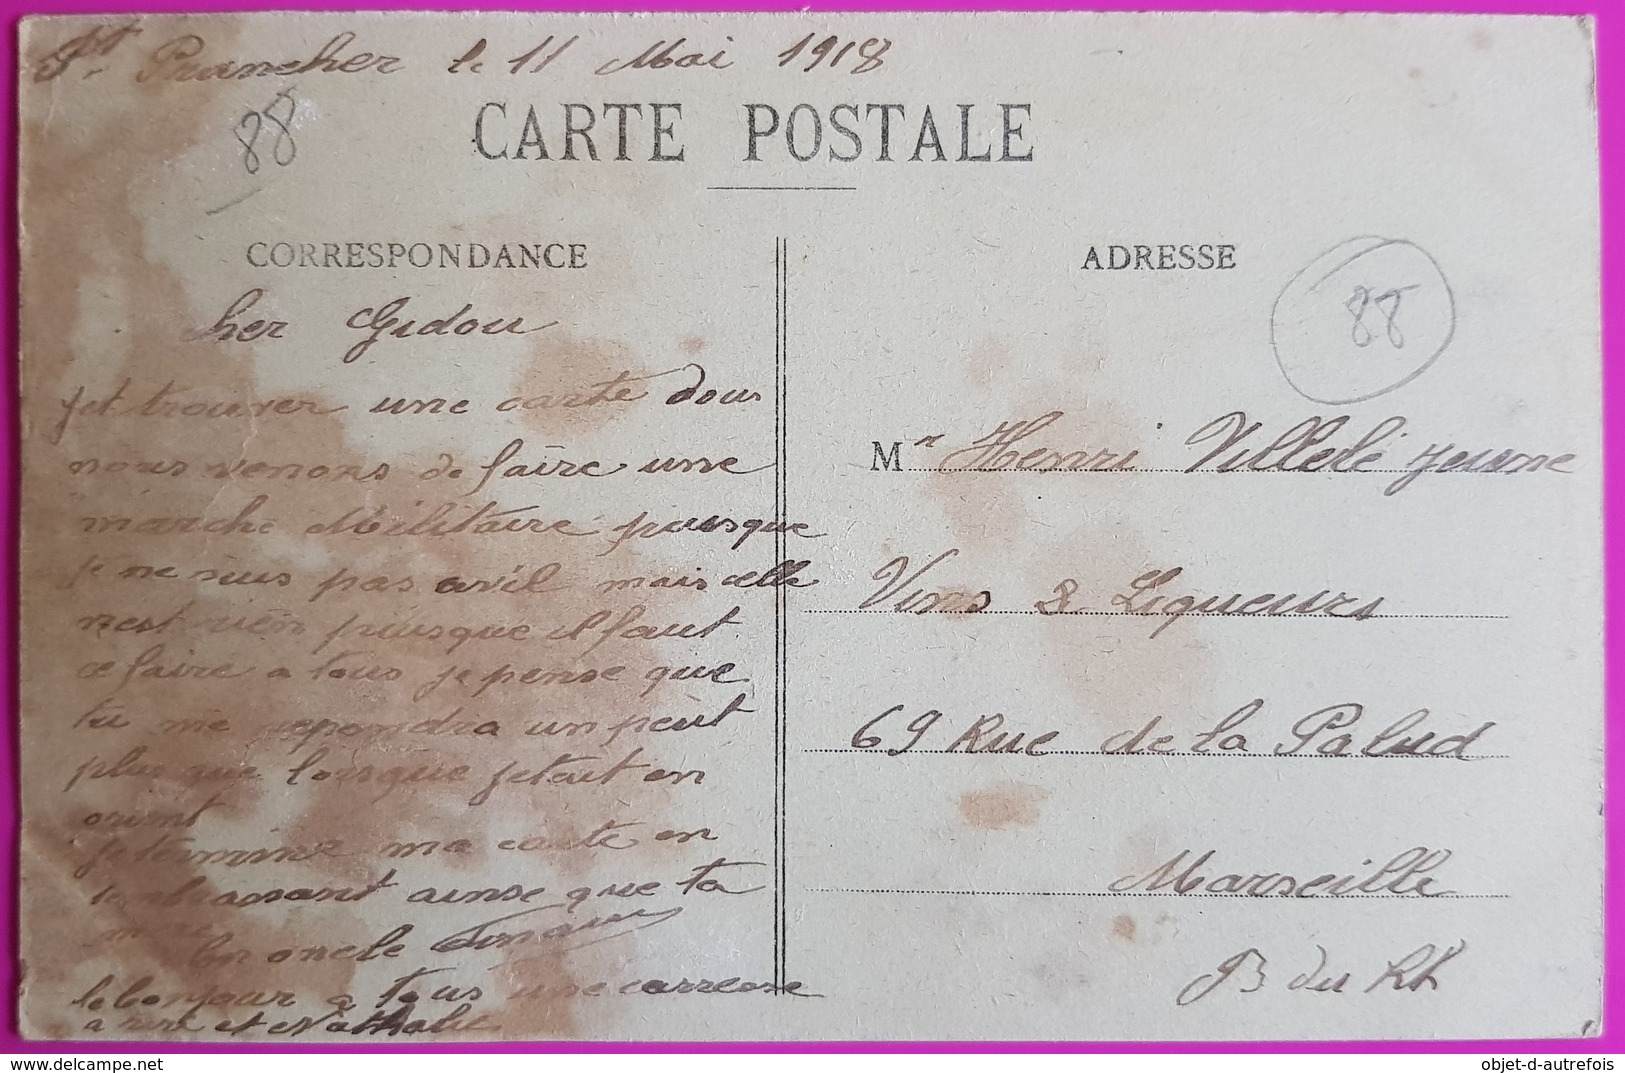 St Prancher le 11 Mai 1918
88
CARTE POSTALE
CORRESPONDANCE
ADRESSE
88
cher Gidou
jet trouver une carte dou
nous venons de faire une
marche Militaire pusque
je ne suis pas avil mais celle
nest rien puisque il faut
ce faire a tous je pense que
tu me repondra un peut
plus que lorsque jetait en
orient
je termine ma carte en
tembrassant ainse que ta
ton oncle
le bonjour a tous une carresse
a et Nathalie
Mr Henri Villelé jeune
Vins & Liqueurs
69 Rue de la Palud
Marseille
B du Rh
www.delcampe.net
objet-d-autrefois